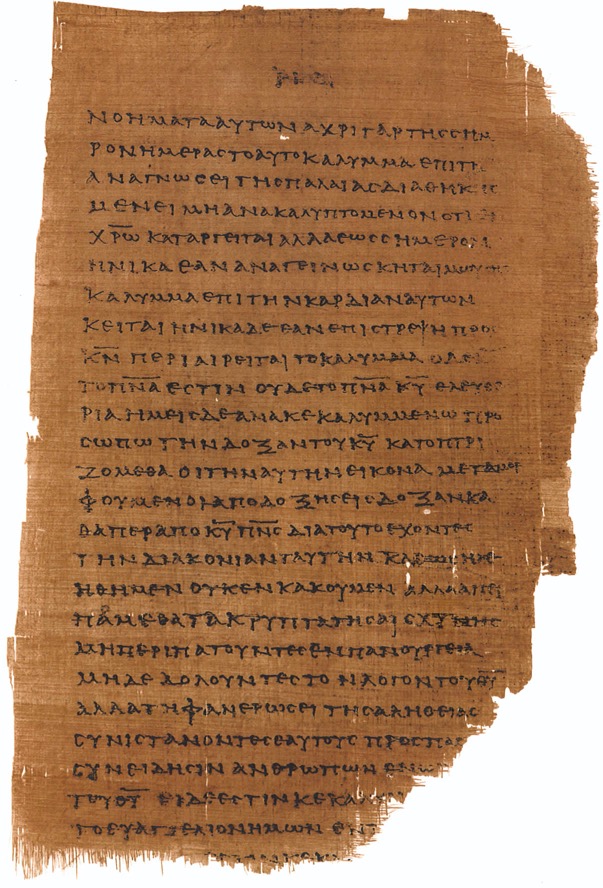 ΝΟΗΜΑΤΑΑΥΤΩΝΑΧΡΙΓΑΡΤΗϹϹΗΜ
ΡΟΝΗΜΕΡΑϹΤΟΑΥΤΟΚΑΛΥΜΜΑΕΠΙΤΗ
ΑΝΑΓΝΩϹΕΙΤΗϹΠΑΛΑΙΑϹΔΙΑΘΗΚΗϹ
ΜΕΝΕΙΜΗΑΝΑΚΑΛΥΠΤΟΜΕΝΟΝΟΤΙ
Χ̅Ρ̅Ω̅ ΚΑΤΑΡΓΕΙΤΑΙΑΛΛΑΕΩϹϹΗΜΕΡΟΝ
ΗΝΙΚΑΕΑΝΑΝΑΓΕΙΝΩϹΚΗΤΑΙ
ΚΑΛΥΜΜΑΕΠΙΤΗΝΚΑΡΔΙΑΝΑΥΤΩΝ
ΚΕΙΤΑΙΗΝΙΚΑΔΕΕΑΝΕΠΙϹΤΡΕΨΗΠΡΟϹ
Κ̅Ν̅ ΠΕΡΙΑΙΡΕΙΤΑΙΤΟΚΑΛΥΜΜΑ ΟΔΕ
ΤΟΠ̅Ν̅Α̅ ΕϹΤΙΝ ΟΥΔΕΤΟΠ̅Ν̅Α̅ Κ̅Υ̅ ΕΛΕΥΘΕ
ΡΙΑΗΜΕΙϹΔΕΑΝΑΚΕΚΑΛΥΜΜΕΝΩΠΡΟ
ϹΩΠΩΤΗΝΔΟΞΑΝΤΟΥΚ̅Υ̅ ΚΑΤΟΠΤΡΙ
ΖΟΜΕΘΑ ΟΙΤΗΝΑΥΤΗΝΕΙΚΟΝΑ ΜΕΤΑΜΟΡ
ΦΟΥΜΕΝΟΙΑΠΟΔΟΞΗϹΕΙϹΔΟΞΑΝΚΑ
ΘΑΠΕΡΑΠΟΚ̅Υ̅Π̅Ν̅Ϲ̅ ΔΙΑΤΟΥΤΟΕΧΟΝΤΕϹ
ΤΗΝΔΙΑΚΟΝΙΑΝΤΑΥΤΗΝ ΚΑΘΩϹΗΛΕ
ΗΘΗΜΕΝ ΟΥΚΕΝΚΑΚΟΥΜΕΝ ΑΛΛΑΑΠΕΙ
ΠΑΜΕΘΑΤΑΚΡΥΠΤΑΤΗϹΑΙϹΧΥΝΗϹ
ΜΗΠΕΡΙΠΑΤΟΥΝΤΕϹΕΝΠΑΝΟΥΡΓΕΙΑ
ΜΗΔΕΔΟΛΟΥΝΤΕϹΤΟΝΛΟΓΟΝΤΟΥΘ̅Υ̅
ΑΛΛΑΤΗΦΑΝΕΡΩϹΕΙΤΗϹΑΛΗΘΕΙΑϹ
ϹΥΝΙϹΤΑΝΟΝΤΕϹΕΑΥΤΟΥϹ ΠΡΟϹΠΑϹ
ϹΥΝΕΙΔΗϹΙΝΑΝΘΡΩΠΩΝΕΝΩ
ΤΟΥΘ̅Υ̅ ΕΙΔΕΕϹΤΙΝΚΕΚΑΛΥ
ΤΟΕΥΑΓΓΕΛΙΟΝΗΜΩΝΕΝ